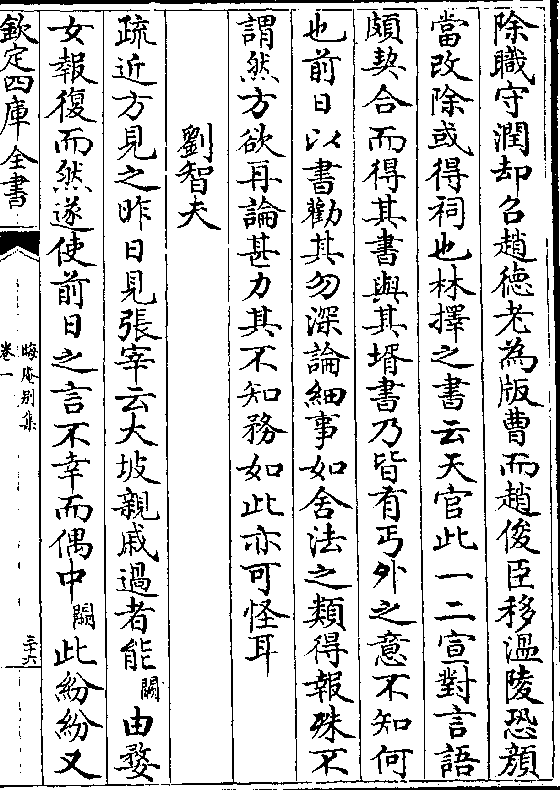 除職守潤却召趙德老為版曹而趙俊臣移溫陵恐顔
當改除或得祠也林擇之書云天官此一二宣對言語
頗契合而得其書與其壻書乃皆有丐外之意不知何
也前日以書勸其勿深論細事如舍法之類得報殊不
謂然方欲再論甚力其不知務如此亦可怪耳
劉智夫
疏近方見之昨日見張宰云大坡親戚過者能闕由婺
女報復而然遂使前日之言不幸而偶中闕此紛紛又
欽定四庫全書
晦庵別集
卷一
三十六